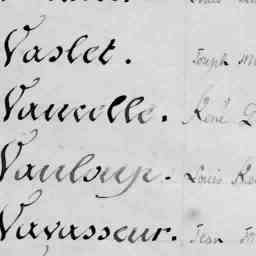 Vaslet. Joseph
Vauvelle. René
Vauloup. Louis
Vavasseur. Jean